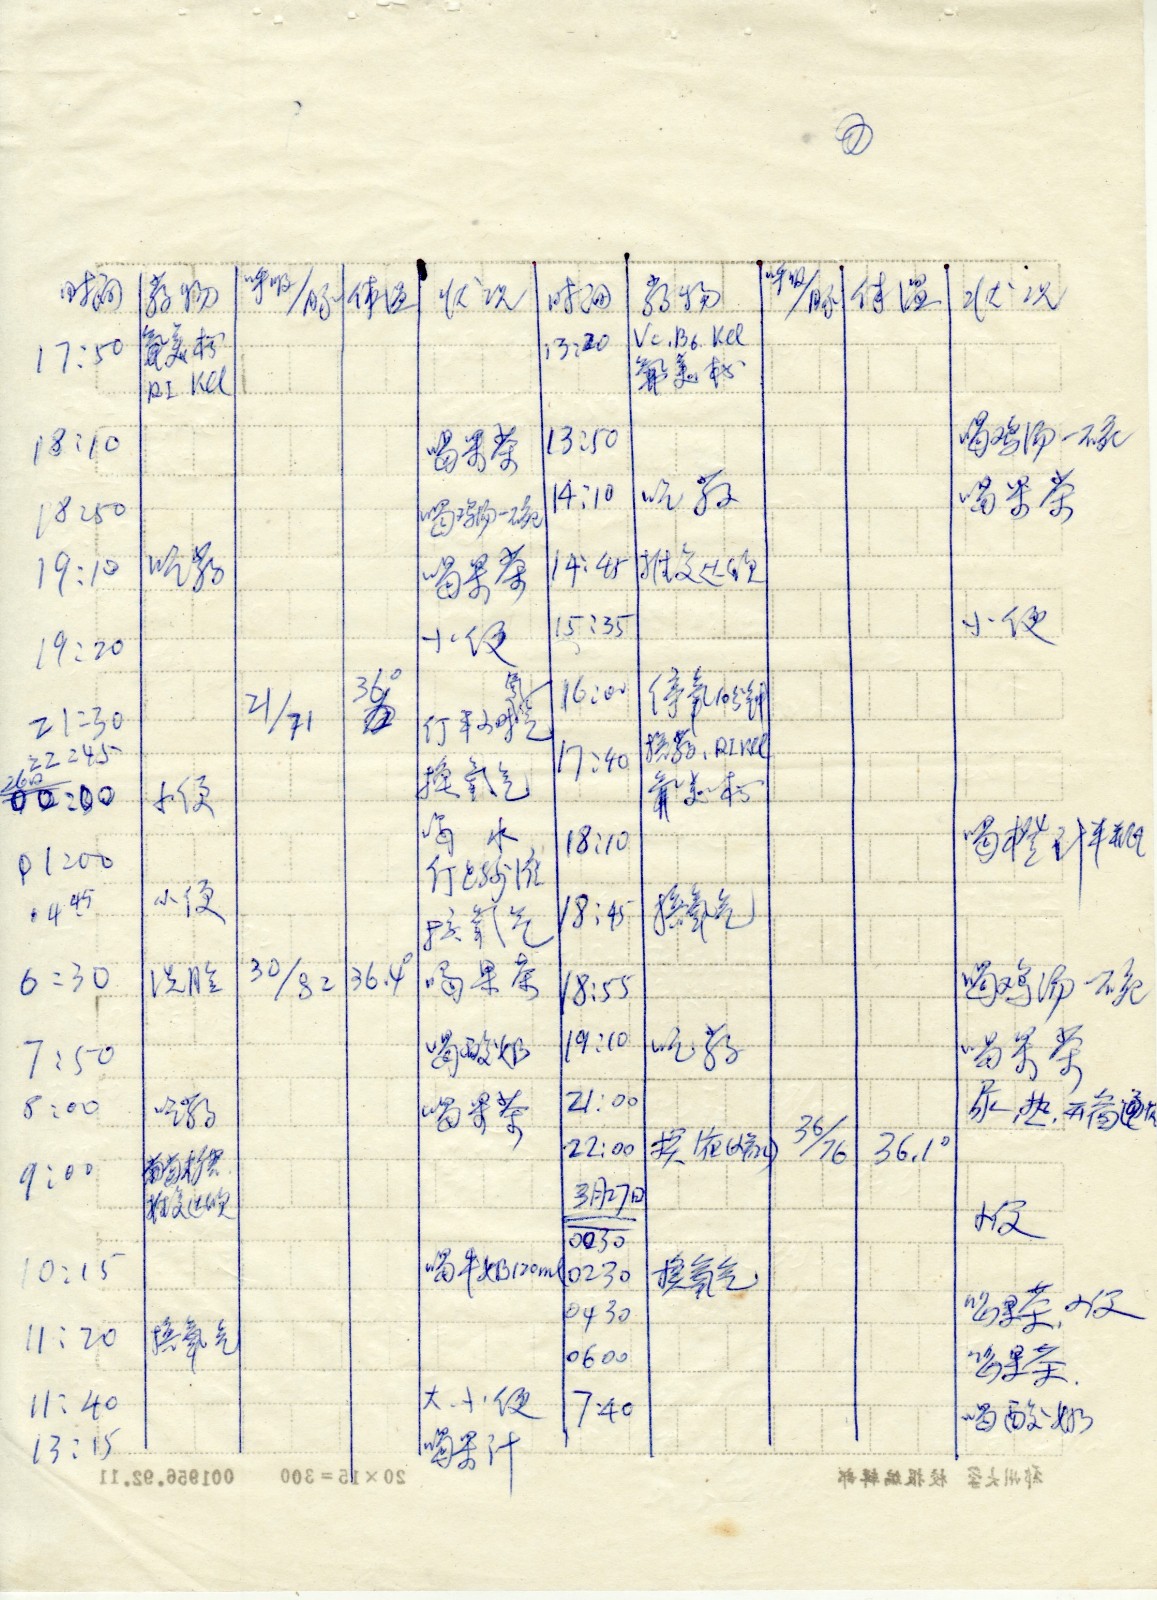 ⑦
时间 药物 呼吸/脉 体温 状况
17:50 RI KCl
18:10 喝果茶
18:50 喝鸡汤一碗
19:10 吃药 喝果茶
19:20 小便
21:30 21/71 36°
22:45 换氧气
00:00 小便 喝水
01:00
04 45 小便 换氧气
6:30 洗脸 30/82 36.4° 喝果茶
7:50 喝酸奶
8:00 吃药 喝果茶
9:00
10:15 喝牛奶120ml
11:20 换氧气
11:40 大.小便
13:15 喝果汁
时间 药物 呼吸/脉 体温 状况
13:20 Vc.B6.KCl
13:50 喝鸡汤一碗
14:10 吃药 喝果茶
14:45
15:35 小便
16:00 停氧10分钟
17:40 换药.RI KCl
18:10
18:45 换氧气
18:55 喝鸡汤一碗
19:10 吃药 喝果茶
21:00
22:00 36/76 36.1°
3月27日
0030 小便
0230 换氧气
0430 喝果茶.小便
0600 喝果茶.
7:40 喝酸奶
郑州大学 校报编辑部
20×15=300 001956.92.11